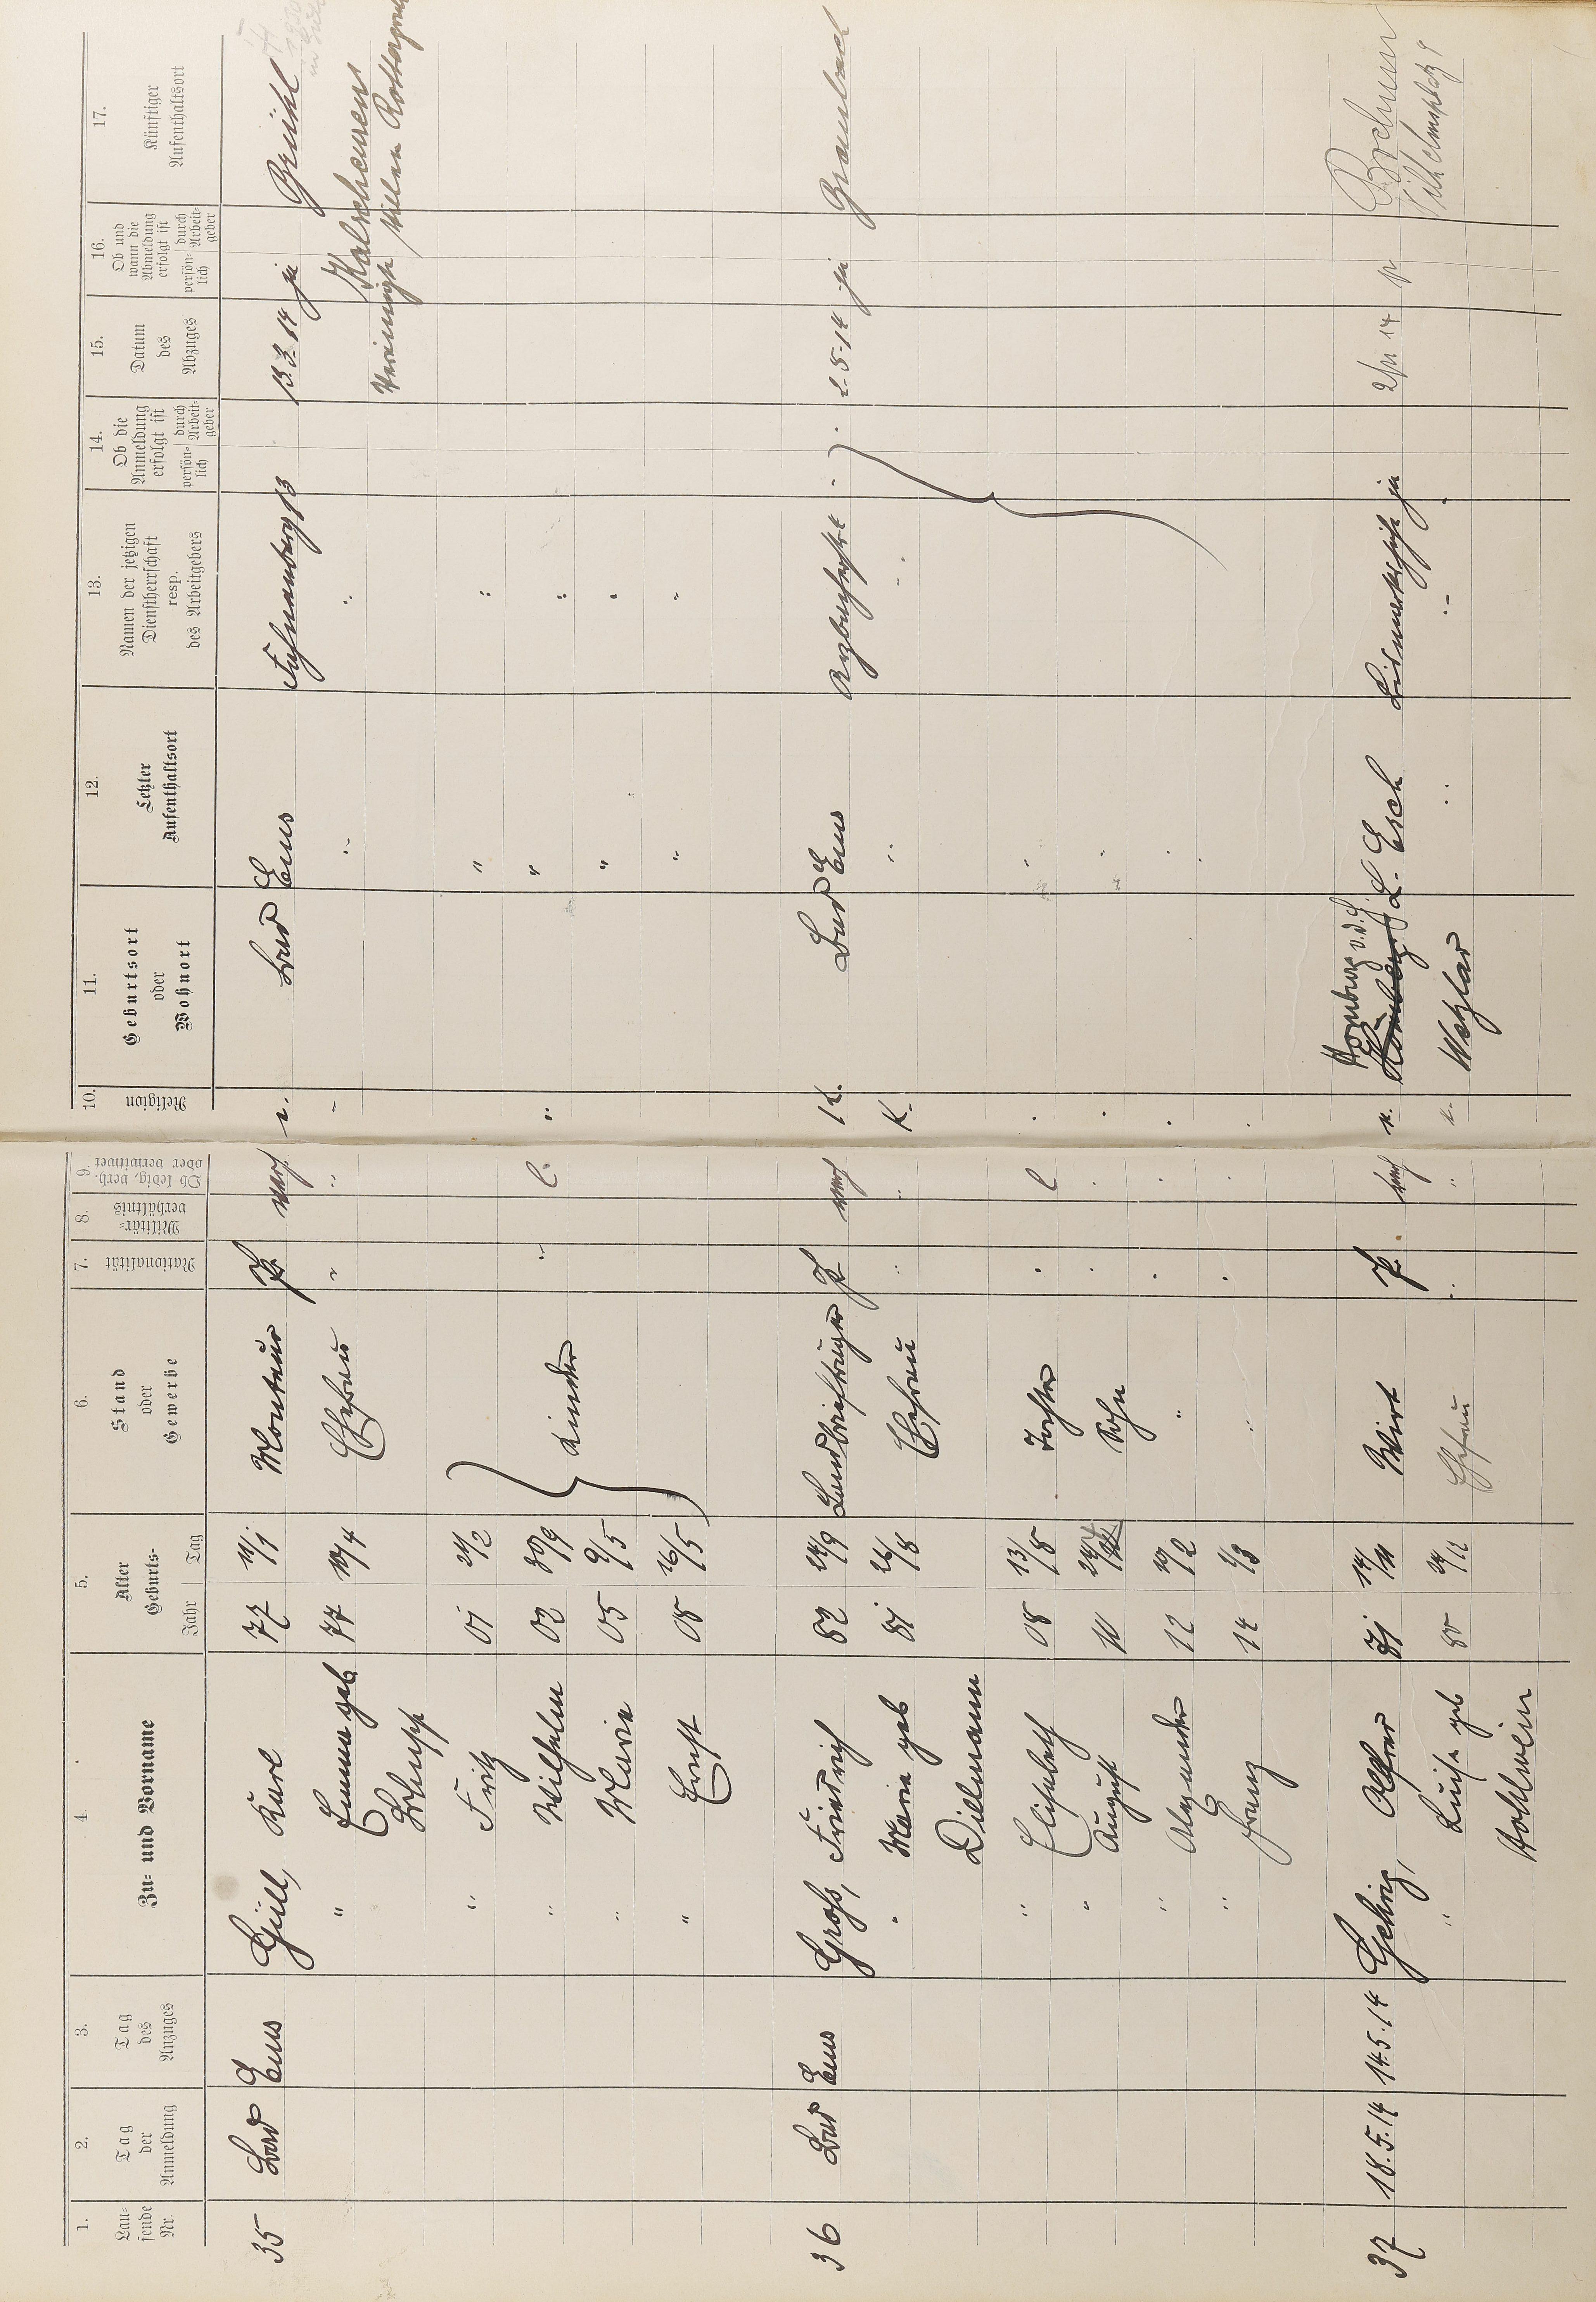 1. Lau= fende Nr.
2. Tag der Anmeldung
3. Tag des Anzuges
4. Zu= und Vorname
5. Alter Geburts= Jahr Tag
6. Stand oder Gewerbe
7. Nationalität
8. Militär= verhältnis
9. Ob ledig, verh. oder verwitwet
10. Religion
11. Geburtsort oder Wohnort
12. Letzter Aufenthaltsort
13. Namen der jetzigen Dienstherrschaft resp. des Arbeitgebers
14. Ob die Anmeldung erfolgt ist persön= lich durch Arbeit= geber
15. Datum des Abzuges
16. Ob und wann die Abmeldung erfolgt ist persön= lich durch Arbeit= geber
17. Künftiger Aufenthaltsort
35 Bad Ems Güll, Karl 77 11/1 Monteur P. verh. Bad Ems 13 14 ja Brühl
" Emma geb 77 10/4 Ehefrau " " " " Kalscheuren
" Fritz 01 24/2 " "
" Wilhelm 02 30/9 Kinder " l. " " "
" Maria 05 9/5 " "
" Ernst 08 16/5 " "
36 Bad Ems Groß, Friedrich 82 24/9 Landbriefträger P. verh K. Bad Ems 2-5-14 ja Braubach
" Maria geb 81 26/8 Ehefrau " " K. " "
Dillmann
" Elisabeth 08 13/8 Tochter " l " "
" August 10 Sohn " " " "
" Alexander 12 10/2 " " " " "
" Franz 14 1/3 " " " "
37 18.5.14 14.5.14 Gehring, Alfred 14/11 Wirt P. verh Homburg v.d.H. L. Esch ja 14 Bochum
" Luise geb 24/12 Ehefrau " " Wetzlar " " Wilhelmsplatz 9
Hohlwein